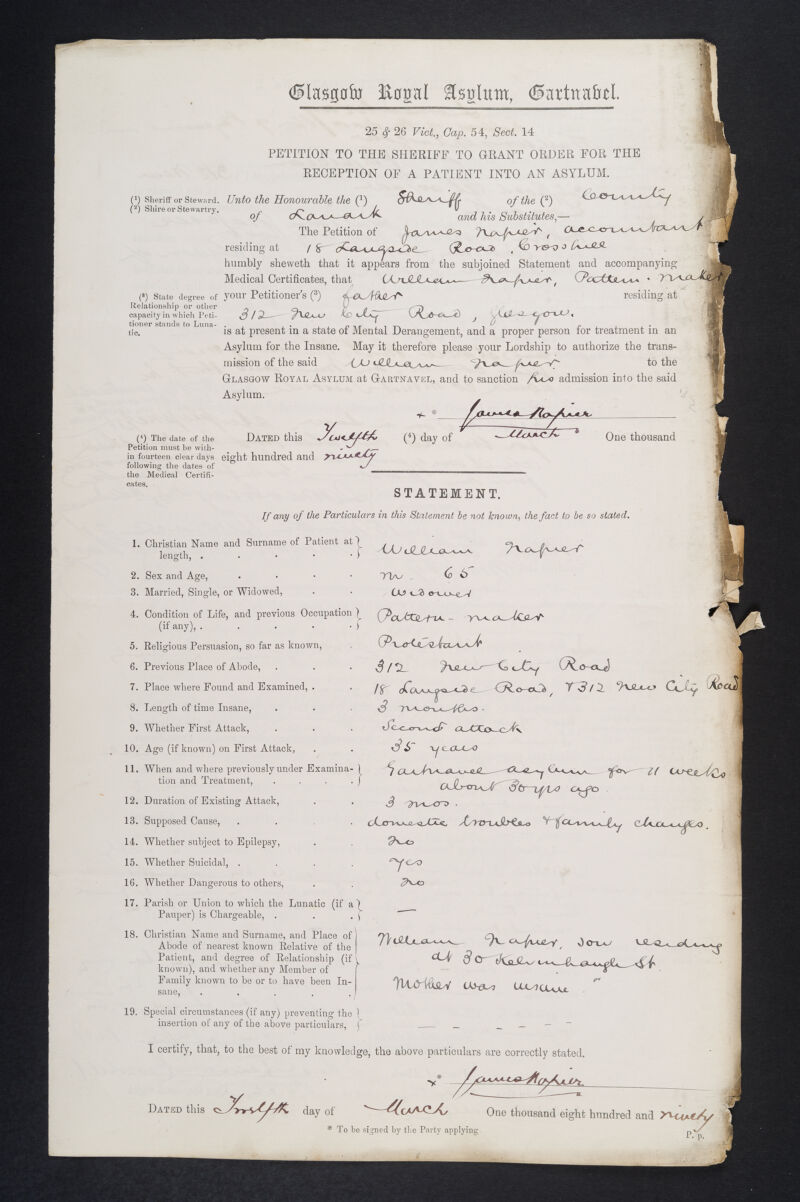 Glasgow Royal Asylum, Gartnabel.
25 & 26 Vict., Cap. 54, Sect. 14
PETITION TO THE SHERIFF TO GRANT ORDER FOR THE
RECEPTION OF A PATIENT INTO AN ASYLUM.
(1) Sheriff or Steward.
(2) Shire or Stewartry.
Unto the Honourable the (1) Sheriff of the (2) County
of Lanark and his Substitutes,—
The Petition of James Napier, accountant
residing at 18 Langside Road, Crosshill
humbly sheweth that it appears from the subjoined Statement and accompanying
Medical Certificates, that William Napier, Pattern-maker
(3) State degree of
Relationship or other
capacity in which Peti-
tioner stands to Luna-
tic.
your Petitioner's (3) father residing at
312 New City Road, Glasgow.
is at present in a state of Mental Derangement, and a proper person for treatment in an
Asylum for the Insane. May it therefore please your Lordship to authorize the trans-
mission of the said William Napier to the
GLASGOW ROYAL ASYLUM at GARTNAVEL, and to sanction his admission into the said
Asylum.
x * James Napier
(4) The date of the
Petition must be with-
in fourteen clear days
following the dates of
the Medical Certifi-
cates.
DATED this Twelfth (4) day of March One thousand
eight hundred and ninety
STATEMENT.
If any of the Particulars in this Statement be not known, the fact to be so stated.
1. Christian Name and Surname of Patient at
length, . . . . . William Napier
2. Sex and Age, . . . . M. 65
3. Married, Single, or Widowed, . . Widower
4. Condition of Life, and previous Occupation
(if any), . . . . . Pattern-maker
5. Religious Persuasion, so far as known, . Protestant
6. Previous Place of Abode, . . . 312 New City Road
7. Place where Found and Examined, . . 18 Langside Road, & 312 New City Road
8. Length of time Insane, . . . 3 months.
9. Whether First Attack, . . . Second attack
10. Age (if known) on First Attack, . . 35 years
11. When and where previously under Examina-
tion and Treatment, . . . . Gartnavel asylum for 11 weeks
about 30 yrs ago.
12. Duration of Existing Attack, . . 3 mos.
13. Supposed Cause, . . . . domestic troubles & family changes.
14. Whether subject to Epilepsy, . . No
15. Whether Suicidal, . . . . Yes
16. Whether Dangerous to others, . . No
17. Parish or Union to which the Lunatic (if a
Pauper) is Chargeable, . . . —
18. Christian Name and Surname, and Place of
Abode of nearest known Relative of the
Patient, and degree of Relationship (if
known), and whether any Member of
Family known to be or to have been In-
sane, . . . . .
William Napier, son residing
at 30 Kelvinhaugh St.
Mother was insane."
19. Special circumstances (if any) preventing the
insertion of any of the above particulars, — — — — —
I certify, that, to the best of my knowledge, the above particulars are correctly stated.
x * James Napier
DATED this Twelfth day of March One thousand eight hundred and ninety
* To be signed by the Party applying.
P. p.